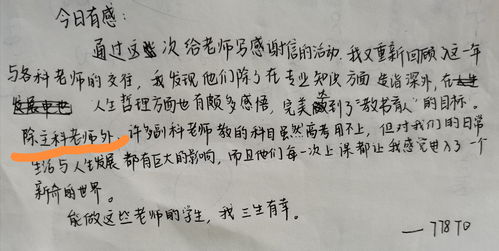 今日有感:
通过这次给老师写感谢信的活动.我又重新回顾入这一年
与各科老师的交往,我发现他们除了在专业知识方面造诣深外,在人生
发展中也 人生哲理方面也有颇多感悟,完美做到了“教书育人”的目标。
除主科老师外,许多副科老师教的科目虽然高考用不上,但对我们的日常
生活与人生发展都有巨大的影响,而且他们每一次上课都让我感觉进入了一个
新奇的世界。
能做这些老师的学生,我三生有幸。
——778TO